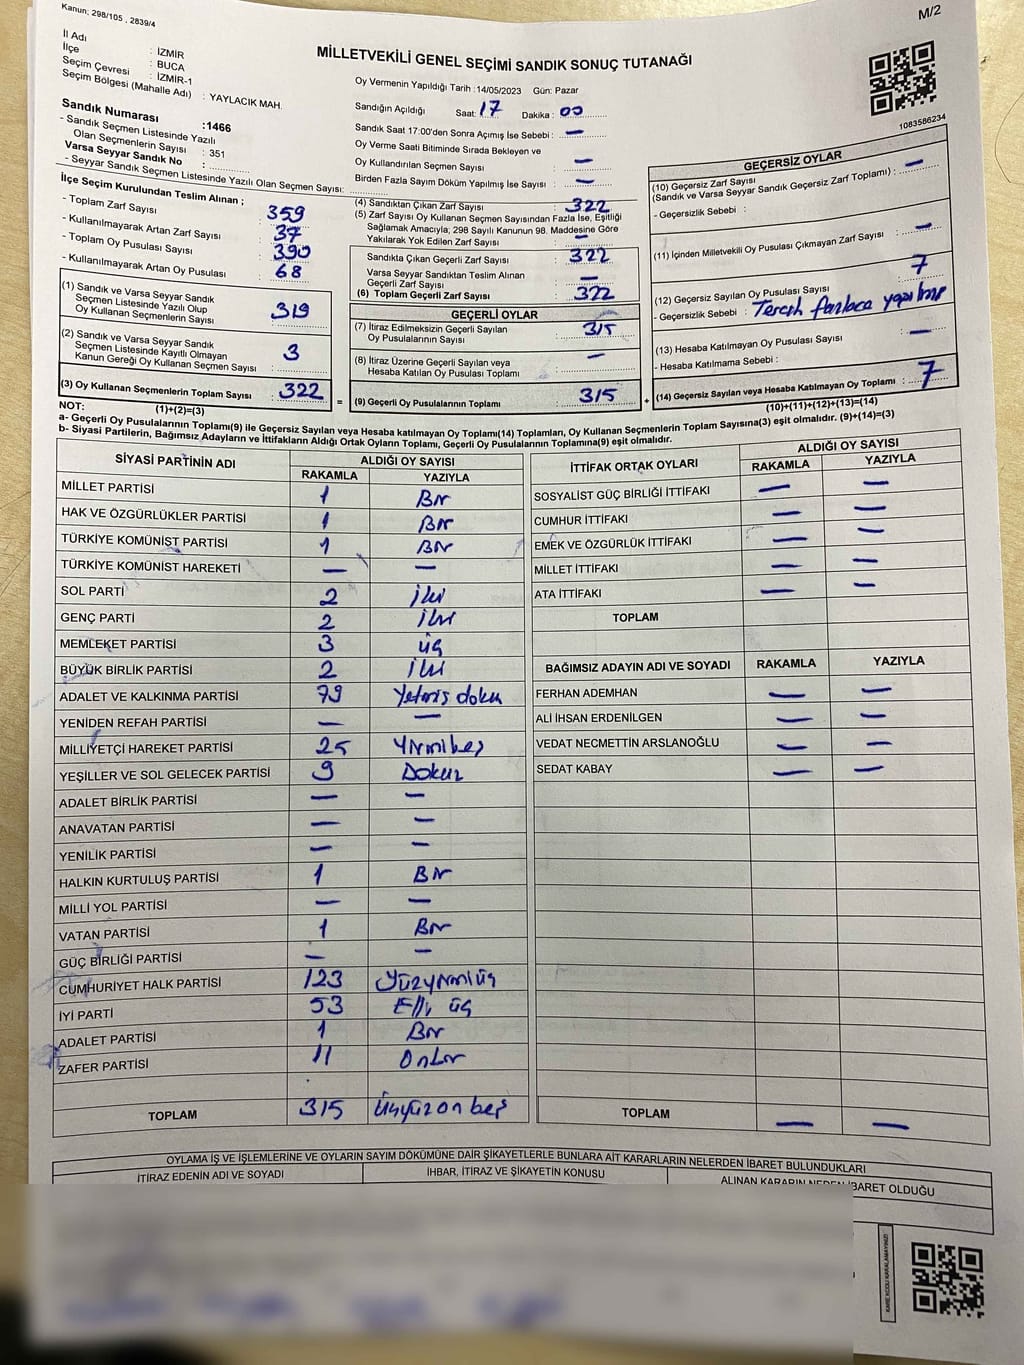 Kanun; 298/105 , 2839/4
M/2
İl Adı : İZMİR
İlçe : BUCA
Seçim Çevresi : İZMİR-1
Seçim Bölgesi (Mahalle Adı) : YAYLACIK MAH.
MİLLETVEKİLİ GENEL SEÇİMİ SANDIK SONUÇ TUTANAĞI
Oy Vermenin Yapıldığı Tarih :14/05/2023 Gün: Pazar
Sandığın Açıldığı Saat: 17 Dakika : 00
Sandık Saat 17:00'den Sonra Açımış İse Sebebi : —
Oy Verme Saati Bitiminde Sırada Bekleyen ve
Oy Kullandırılan Seçmen Sayısı : —
Birden Fazla Sayım Döküm Yapılmış İse Sayısı : —
1083586234
Sandık Numarası :1466
- Sandık Seçmen Listesinde Yazılı
Olan Seçmenlerin Sayısı : 351
Varsa Seyyar Sandık No :
- Seyyar Sandık Seçmen Listesinde Yazılı Olan Seçmen Sayısı:
İlçe Seçim Kurulundan Teslim Alınan ;
- Toplam Zarf Sayısı : 359
- Kullanılmayarak Artan Zarf Sayısı : 37
- Toplam Oy Pusulası Sayısı : 390
- Kullanılmayarak Artan Oy Pusulası : 68
(1) Sandık ve Varsa Seyyar Sandık
Seçmen Listesinde Yazılı Olup
Oy Kullanan Seçmenlerin Sayısı : 319
(2) Sandık ve Varsa Seyyar Sandık
Seçmen Listesinde Kayıtlı Olmayan
Kanun Gereği Oy Kullanan Seçmen Sayısı : 3
(3) Oy Kullanan Seçmenlerin Toplam Sayısı : 322
(4) Sandıktan Çıkan Zarf Sayısı : 322
(5) Zarf Sayısı Oy Kullanan Seçmen Sayısından Fazla İse, Eşitliği
Sağlamak Amacıyla; 298 Sayılı Kanunun 98. Maddesine Göre
Yakılarak Yok Edilen Zarf Sayısı : —
Sandıkla Çıkan Geçerli Zarf Sayısı : 322
Varsa Seyyar Sandıktan Teslim Alınan
Geçerli Zarf Sayısı : —
(6) Toplam Geçerli Zarf Sayısı : 322
GEÇERLİ OYLAR
(7) İtiraz Edilmeksizin Geçerli Sayılan
Oy Pusulalarının Sayısı : 315
(8) İtiraz Üzerine Geçerli Sayılan veya
Hesaba Katılan Oy Pusulası Toplamı : —
= (9) Geçerli Oy Pusulalarının Toplamı : 315 +
GEÇERSİZ OYLAR
(10) Geçersiz Zarf Sayısı
(Sandık ve Varsa Seyyar Sandık Geçersiz Zarf Toplamı) : —
- Geçersizlik Sebebi :
(11) İçinden Milletvekili Oy Pusulası Çıkmayan Zarf Sayısı : —
(12) Geçersiz Sayılan Oy Pusulası Sayısı : 7
- Geçersizlik Sebebi : Tercih fazlaca yapılmış
(13) Hesaba Katılmayan Oy Pusulası Sayısı : —
- Hesaba Katılmama Sebebi :
(14) Geçersiz Sayılan veya Hesaba Katılmayan Oy Toplamı : 7
NOT: (1)+(2)=(3) (10)+(11)+(12)+(13)=(14)
a- Geçerli Oy Pusulalarının Toplamı(9) ile Geçersiz Sayılan veya Hesaba katılmayan Oy Toplamı(14) Toplamları, Oy Kullanan Seçmenlerin Toplam Sayısına(3) eşit olmalıdır. (9)+(14)=(3)
b- Siyasi Partilerin, Bağımsız Adayların ve İttifakların Aldığı Ortak Oyların Toplamı, Geçerli Oy Pusulalarının Toplamına(9) eşit olmalıdır.
SİYASİ PARTİNİN ADI ALDIĞI OY SAYISI
RAKAMLA YAZIYLA
MİLLET PARTİSİ 1 Bir
HAK VE ÖZGÜRLÜKLER PARTİSİ 1 Bir
TÜRKİYE KOMÜNİST PARTİSİ 1 Bir
TÜRKİYE KOMÜNİST HAREKETİ — —
SOL PARTİ 2 İki
GENÇ PARTİ 2 İki
MEMLEKET PARTİSİ 3 üç
BÜYÜK BİRLİK PARTİSİ 2 İki
ADALET VE KALKINMA PARTİSİ 79 Yetmiş dokuz
YENİDEN REFAH PARTİSİ — —
MİLLİYETÇİ HAREKET PARTİSİ 25 Yirmibeş
YEŞİLLER VE SOL GELECEK PARTİSİ 9 Dokuz
ADALET BİRLİK PARTİSİ — —
ANAVATAN PARTİSİ — —
YENİLİK PARTİSİ — —
HALKIN KURTULUŞ PARTİSİ 1 Bir
MİLLİ YOL PARTİSİ — —
VATAN PARTİSİ 1 Bir
GÜÇ BİRLİĞİ PARTİSİ — —
CUMHURİYET HALK PARTİSİ 123 Yüzyirmiüç
İYİ PARTİ 53 Elli üç
ADALET PARTİSİ 1 Bir
ZAFER PARTİSİ 11 Onbir
TOPLAM 315 Üçyüz on beş
İTTİFAK ORTAK OYLARI ALDIĞI OY SAYISI
RAKAMLA YAZIYLA
SOSYALİST GÜÇ BİRLİĞİ İTTİFAKI — —
CUMHUR İTTİFAKI — —
EMEK VE ÖZGÜRLÜK İTTİFAKI — —
MİLLET İTTİFAKI — —
ATA İTTİFAKI — —
TOPLAM
BAĞIMSIZ ADAYIN ADI VE SOYADI RAKAMLA YAZIYLA
FERHAN ADEMHAN — —
ALİ İHSAN ERDENİLGEN — —
VEDAT NECMETTİN ARSLANOĞLU — —
SEDAT KABAY — —
TOPLAM — —
OYLAMA İŞ VE İŞLEMLERİNE VE OYLARIN SAYIM DÖKÜMÜNE DAİR ŞİKAYETLERLE BUNLARA AİT KARARLARIN NELERDEN İBARET BULUNDUKLARI
İTİRAZ EDENİN ADI VE SOYADI İHBAR, İTİRAZ VE ŞİKAYETİN KONUSU ALINAN KARARIN NEDEN İBARET OLDUĞU
KARE KODU KARALAMAYINIZ!